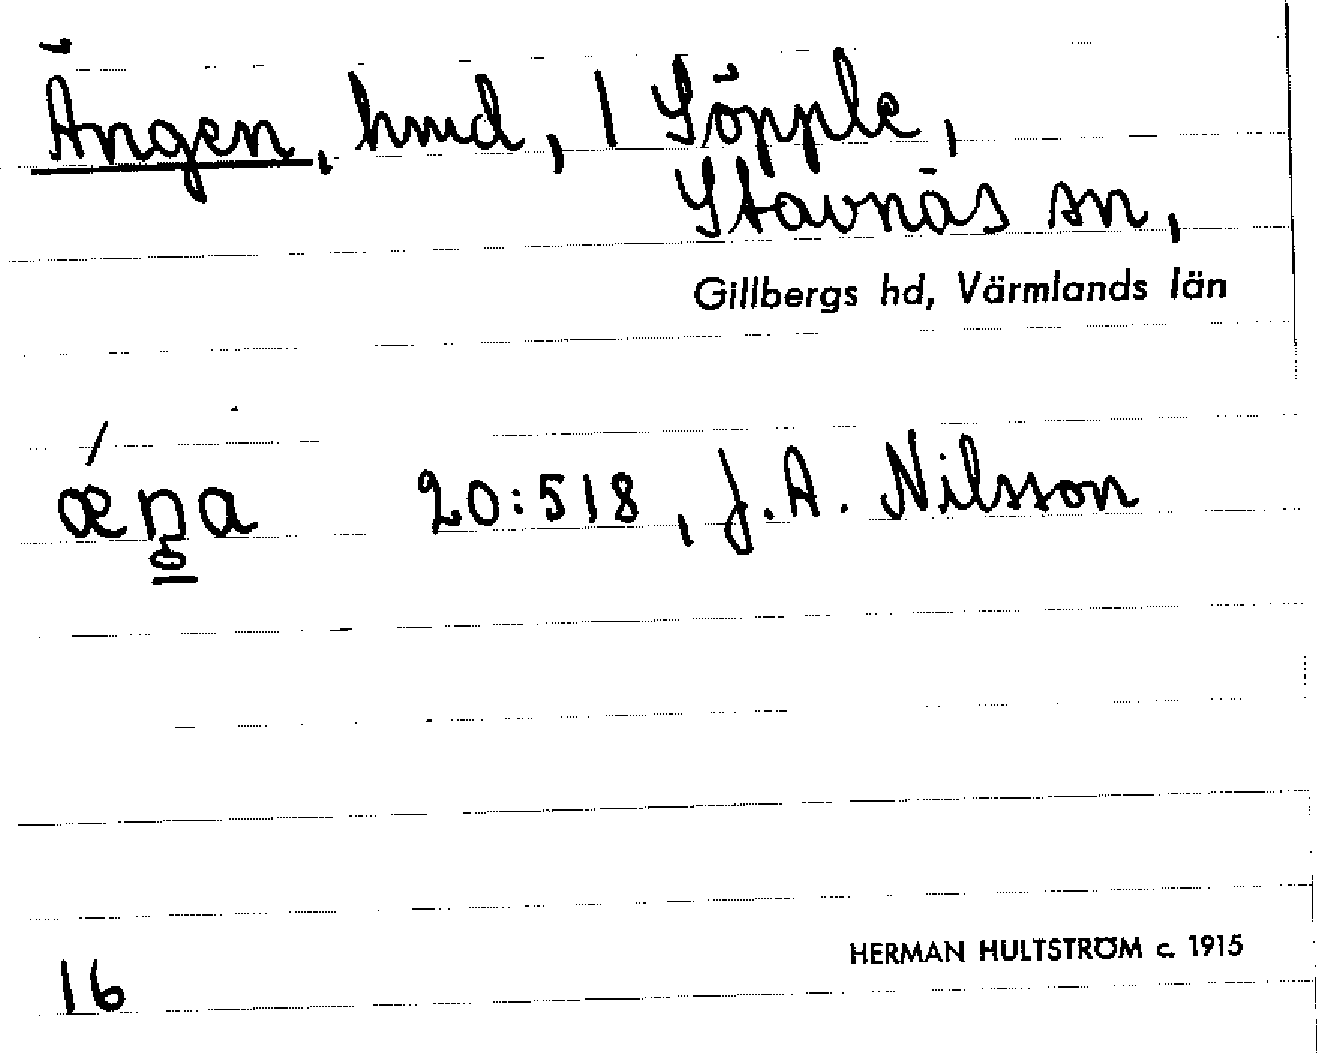 Ängen, hmd, 1 Söpple,
Stavnäs sn,
Gillbergs hd, Värmlands län
20:518, J.A. Nilsson
HERMAN HULTSTRÖM c. 1915
16